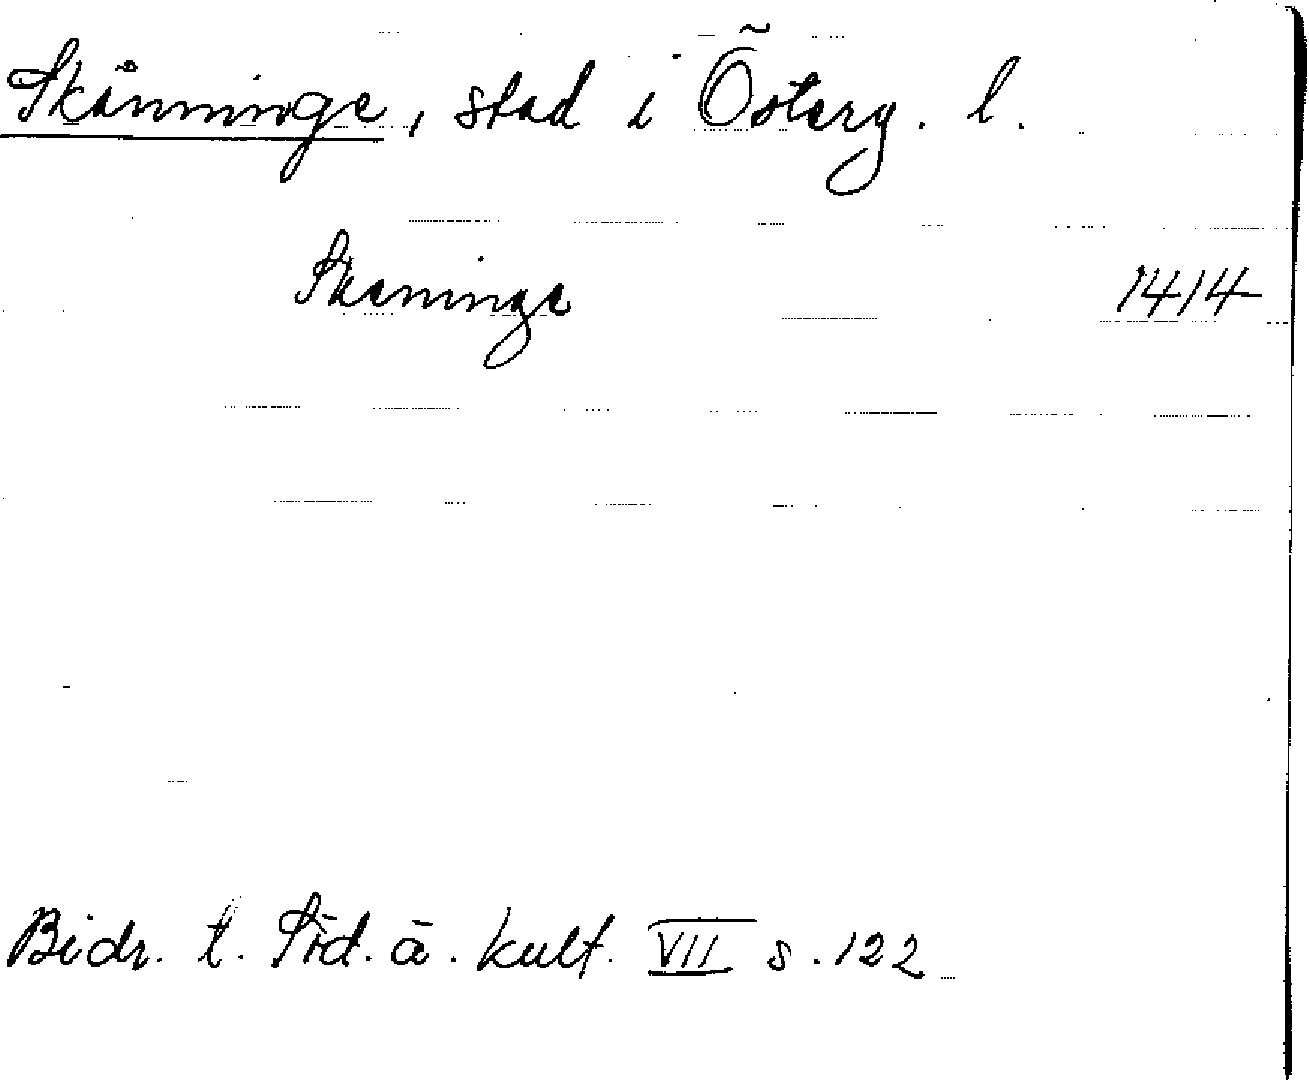 Skänninge, stad i Österg. l.
Skeninge 1414
Bidr. t. Söd. ä. kult. VII s. 122